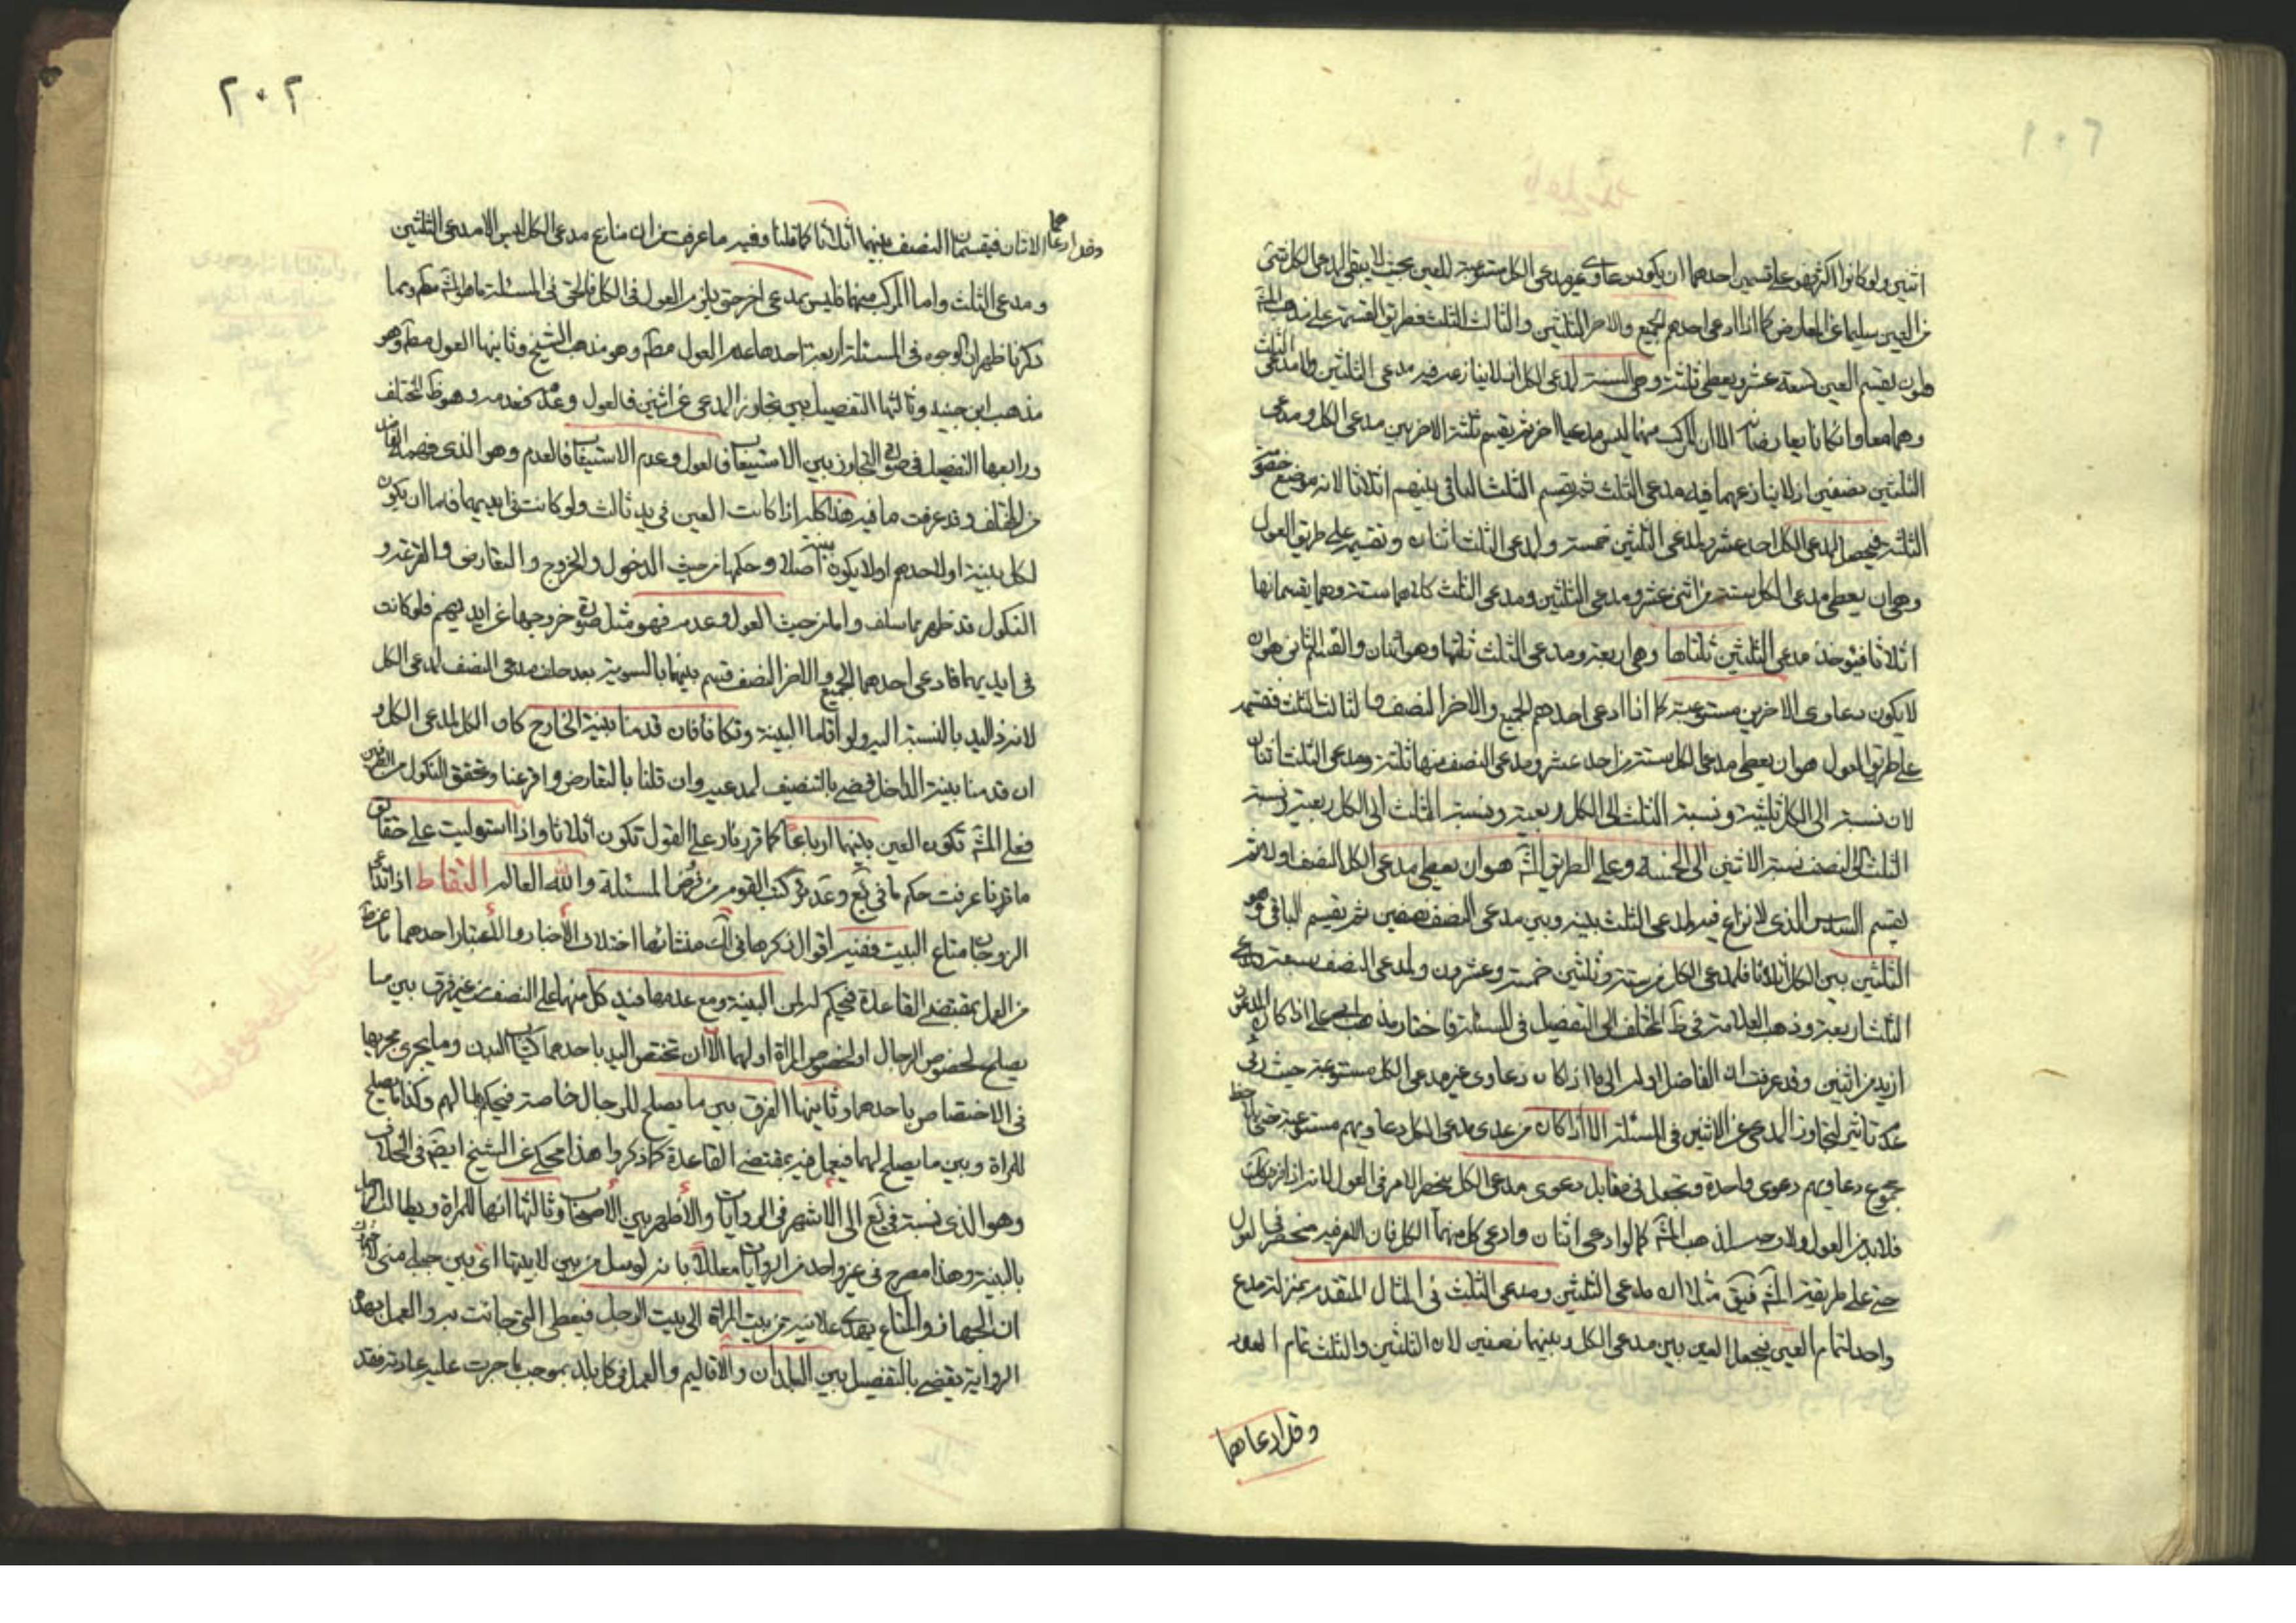 اثنين ولو كانوا اكثر فهو على قسمين احدهما ان يكون دعاوى غير مدعى الكل مستوعبة للعين بحيث لا يبقى لمدعى الكل شئ
من العين سليما عن المعارض كما اذا ادعى احدهم الجميع والاخر الثلثين والثالث الثلث فطريق القسمة على مذهب المشه
هو ان يقسم العين عشر ويعطى ثلثة وهى الستة لمدعى الكل اذ لا ينازعه فيه مدعى الثلثين ولا مدعى الثلث
وهما معا وان كانا يعارضانه الا ان المركب منهما ليس مدعيا اخر ثم يقسم ثلثة الاخر بين مدعى الكل ومدعى
الثلثين نصفين اذ لا ينازعهما فيه مدعى الثلث ثم يقسم الثلث الباقى بينهم اثلاثا لانه موضع حقوق
الثلثة فيحصل لمدعى الكل احد عشر ولمدعى الثلثين خمسة ولمدعى الثلث اثنان وتقسيمه على طريق العول
وهى ان يعطى مدعى الكل ستة من اثنى عشر ومدعى الثلثين ومدعى الثلث كلاهما ستة وهما يقسمانها
اثلاثا فيؤخذ مدعى الثلثين ثلثاها وهى اربعة ومدعى الثلث ثلثها وهو اثنان والقسم الثانى هو ان
لا يكون دعاوى الاخرين مستوعبة كما اذا ادعى احدهم الجميع والاخر النصف والثالث الثلث فقسمته
على طريق العول هو ان يعطى مدعى الكل ستة من احد عشر ومدعى النصف منها ثلثة ومدعى الثلث اثنان
لان نسبته الى الكل ونسبة الثلث الى الكل ونسبة الثلث الى الكل ونسبة
الثلث الى النصف نسبة الاثنين الى وعلى الطريق المشه هو ان يعطى مدعى الكل النصف اولا ثم
يقسم السدس الذى لا نزاع فيه لمدعى الثلث بينه وبين مدعى النصف نصفين ثم يقسم الباقى وهو
الثلثين بين الكل اثلاثا فلمدعى الكل من ستة وثلثين خمسة وعشرون ولمدعى النصف سبعة ولمدعى
الثلث اربعة وذهب العلامة فى ظ المختلف الى التفصيل فى المسئلة فاختار مذهب على اذا كان المدعون
ازيد من اثنين وقد عرفت ان الفاضل الى ما اذا كان دعاوى غير مدعى الكل مستوعبة حيث
تاثير لتجاوز المدعى عن الاثنين فى المسئلة الا اذا كان من عدى مدعى الكل دعاويهم مستوعبة حتى
مجموع دعاويهم دعوى واحدة وتجعل فى مقابل دعوى مدعى الكل ينحصر الامر فى العول
فلا بد من العول ولا وجه لمذهب المشه كما لو ادعى اثنان وادعى كل منهما الكل فان الامر فيه منحصر فى العول
حتى على طريقة المشه فيق مثلا ان مدعى الثلثين ومدعى الثلث فى المثال المتقدم بمنزلة مدع
واحد لتمام العين فيجعل العين بين مدعى الكل وبينهما نصفين لان الثلثين والثلث تمام العين
وقد ادعاهما
٢٠٢
وقد ادعاهما الاثنان فيقسمان النصف بينهما اثلاثا كما قلنا وفيه ما عرفت من ان منازع مدعى الكل ليس الا مدعى الثلثين
ومدعى الثلث واما المركب منهما فليس بمدعى اخر حتى يلزم العول فى الكل فالحق فى المسئلة ما هو المشه مطلقا ومما
ذكرنا ظهر ان الوجوه فى المسئلة اربعة احدها عدم العول مطلقا وهو مذهب الشيخ وثانيها العول مطلقا وهو
مذهب ابن جنيد وثالثها التفصيل بين تجاوز المدعى عن اثنين فالعول وعدمه فعدمه وهو ظ المختلف
ورابعها التفصيل فى صورة التجاوز بين الاستيعاب فالعول وعدم الاستيعاب فالعدم وهو الذى فهمه الفاضل
من المختلف وقد عرفت ما فيه هذا كله اذا كانت العين فى يد ثالث ولو كانت فى ايديهما فاما ان يكون
لكل بينة او لاحدهم او لا يكون بينة اصلا وحكمها من حيث الدخول والخروج والتعارض والقرعة و
النكول قد ظهر بما سلف واما من حيث العول وعدمه فهو مثل صورة خروجها عن ايديهم فلو كانت
فى ايديهما فادعى احدهما الجميع والاخر النصف قسم بينهما بالسوية بعد حلف مدعى النصف لمدعى الكل
لانه ذو اليد بالنسبة اليه ولو اقاما البينة وتكافأ فان قدمنا بينة الخارج كان الكل لمدعى الكل و
ان قدمنا بينة الداخل قضى بالتنصيف لمدعييه وان قلنا بالتعارض واقرعنا وتحقق النكول من الطرفين
فعلى المشه تكون العين بينهما ارباعا كما قرر وعلى القول تكون اثلاثا واذا استوليت على حقايق
ما قررنا عرفت حكم ما فى يد وعدم القوم من المسئلة والله العالم التقاط اذا تداعى
الزوجان متاع البيت ففيه اقوال نذكرها فى الك منشائها اختلاف الاخبار والاعتبار احدها ما عن ط
من العمل بمقتضى القاعدة فيحكم لمن له البينة ومع عدمها فيد كل منهما على النصف من غير فرق بين ما
يصلح لخصوص الرجال او لخصوص المراة او لهما الا ان تختص اليد باحدهما كثياب البدن وما يجرى مجريها
فى الاختصاص باحدهما وثانيها الفرق بين ما يصلح للرجال خاصة فيحكم بها لهم وكذا ما يصلح
للمراة وبين ما يصلح لهما فيعمل فيه بمقتضى القاعدة كما ذكروا هذا محكى عن الشيخ ايضا فى الخلاف
وهو الذى نسبه فى يع الى الاشهر فى الروايات والاظهر بين الاصحاب وثالثها انها للمراة ويطالب الرجل
بالبينة وهذا مصرح فى غير واحد من الروايات معللا بانه لو سئل من بين لابيتها اى بين جبلى منى لاخبروك
ان الجهاز والمتاع يهدى علانية من بيت المراة الى بيت الرجل فيعطى التى جائت به والعمل بهذه
الرواية يقضى بالتفصيل بين البلدان والاقاليم والعمل فى كل بلد بموجب ما جرت عليه عادته فقد